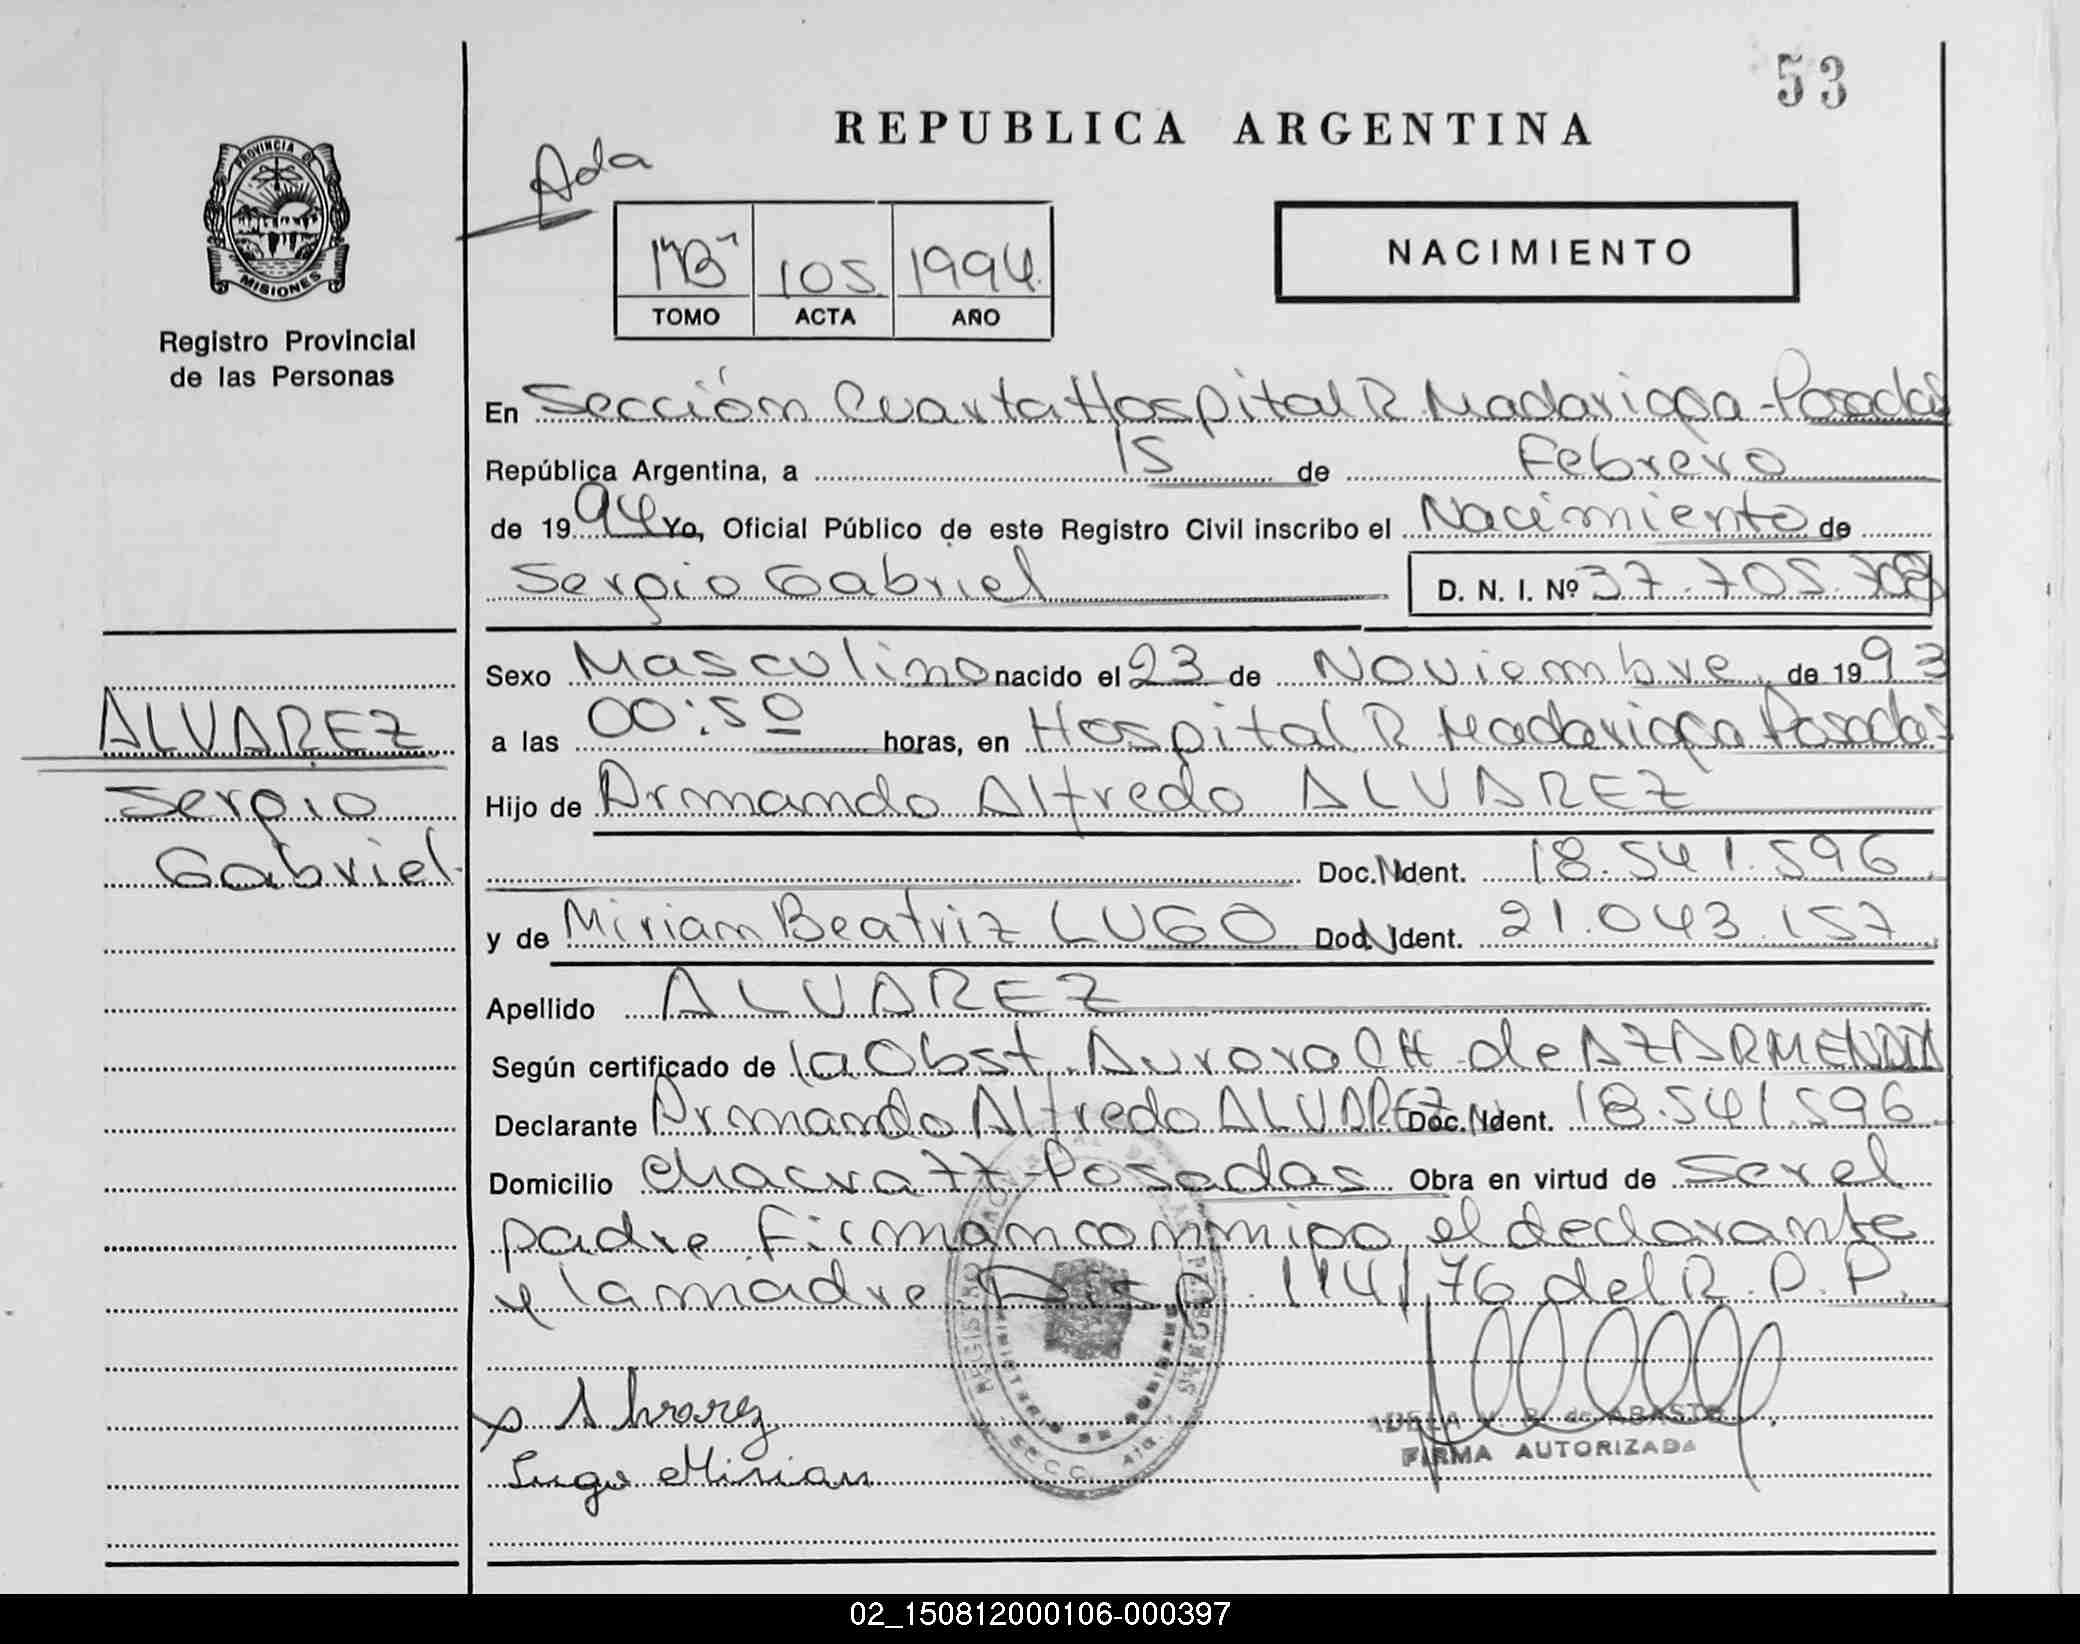 53
REPUBLICA ARGENTINA
Ada
PROVINCIA DE
MISIONES
Registro Provincial
de las Personas
105 1994
TOMO ACTA AÑO
NACIMIENTO
En Sección Cuarta Hospital R Madariaga - Posadas
República Argentina, a 15 de Febrero
de 1994 Yo, Oficial Público de este Registro Civil inscribo el Nacimiento de
Sergio Gabriel D. N. I. Nº 37.705.
Sexo Masculino nacido el 23 de Noviembre de 1993
a las 00:50 horas, en Hospital R Madariaga Posadas
Hijo de Armando Alfredo ALVAREZ
Doc. Ident. 18.541.596
y de Miriam Beatriz LUGO Doc. Ident. 21.043.157
Apellido ALVAREZ
Según certificado de la Obst. Aurora CH. de
Declarante Armando Alfredo ALVAREZ Doc. Ident. 18.541.596
Domicilio Chacra 77 - Posadas Obra en virtud de ser el
padre Firman conmigo el declarante
y la madre Disp. 114/76 del R. P. P.
ALVAREZ
Sergio
Gabriel
Alvarez
Lugo Mirian
ADELA de ABASTO
FIRMA AUTORIZADA
02_150812000106-000397